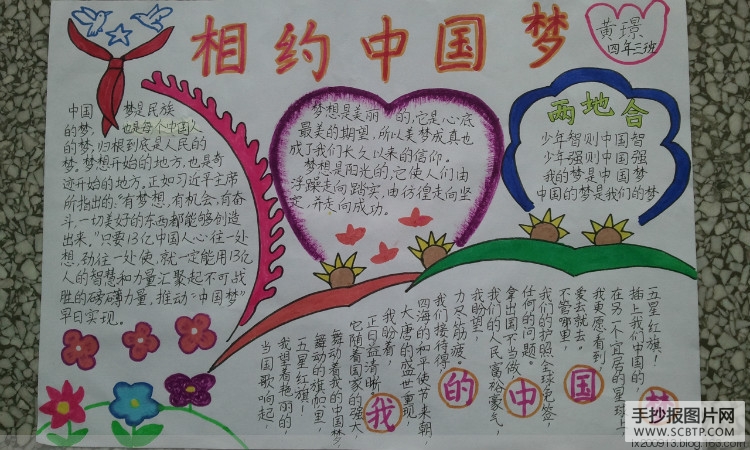 相约中国梦
黄璟
四年三班
中国 梦是民族
的梦,也是每个中国人
的梦,归根到底是人民的
梦。梦想开始的地方,也是奇
迹开始的地方。正如习近平主席
所指出的:“有梦想,有机会,有奋
斗,一切美好的东西都能够创造
出来。”只要13亿中国人心往一处
想,劲往一处使,就一定能用13亿
人的智慧和力量汇聚起不可战
胜的磅礴力量,推动“中国梦”
早日实现。
梦想是美丽的,它是心底
最美的期望,所以美梦成真也
成了我们长久以来的信仰。
梦想是阳光的,它使人们由
浮躁走向踏实,由彷徨走向坚
定,并走向成功。
两地合
少年智则中国智
少年强则中国强
我的梦是中国梦
中国的梦是我们的梦
五星红旗!
插上我们中国的,
在另一个宜居的星球
我更愿看到
爱去就去。
不管哪里,
我们的护照全球免签,
任何的问题。
拿出国不当做
我们的人民富裕豪气,
我盼望,
力尽筋疲。
我们接待得
四海的和平使节来朝,
大唐的盛世重现,
我盼着,
正日益清晰
它随着国家的强大,
舞动着我的中国梦
舞动的旗帜里,
五星红旗!
我望着艳丽的,
当国歌响起,
我的中国梦
手抄报图片网
WWW.SCBTP.COM
lx200913.blog.163.com